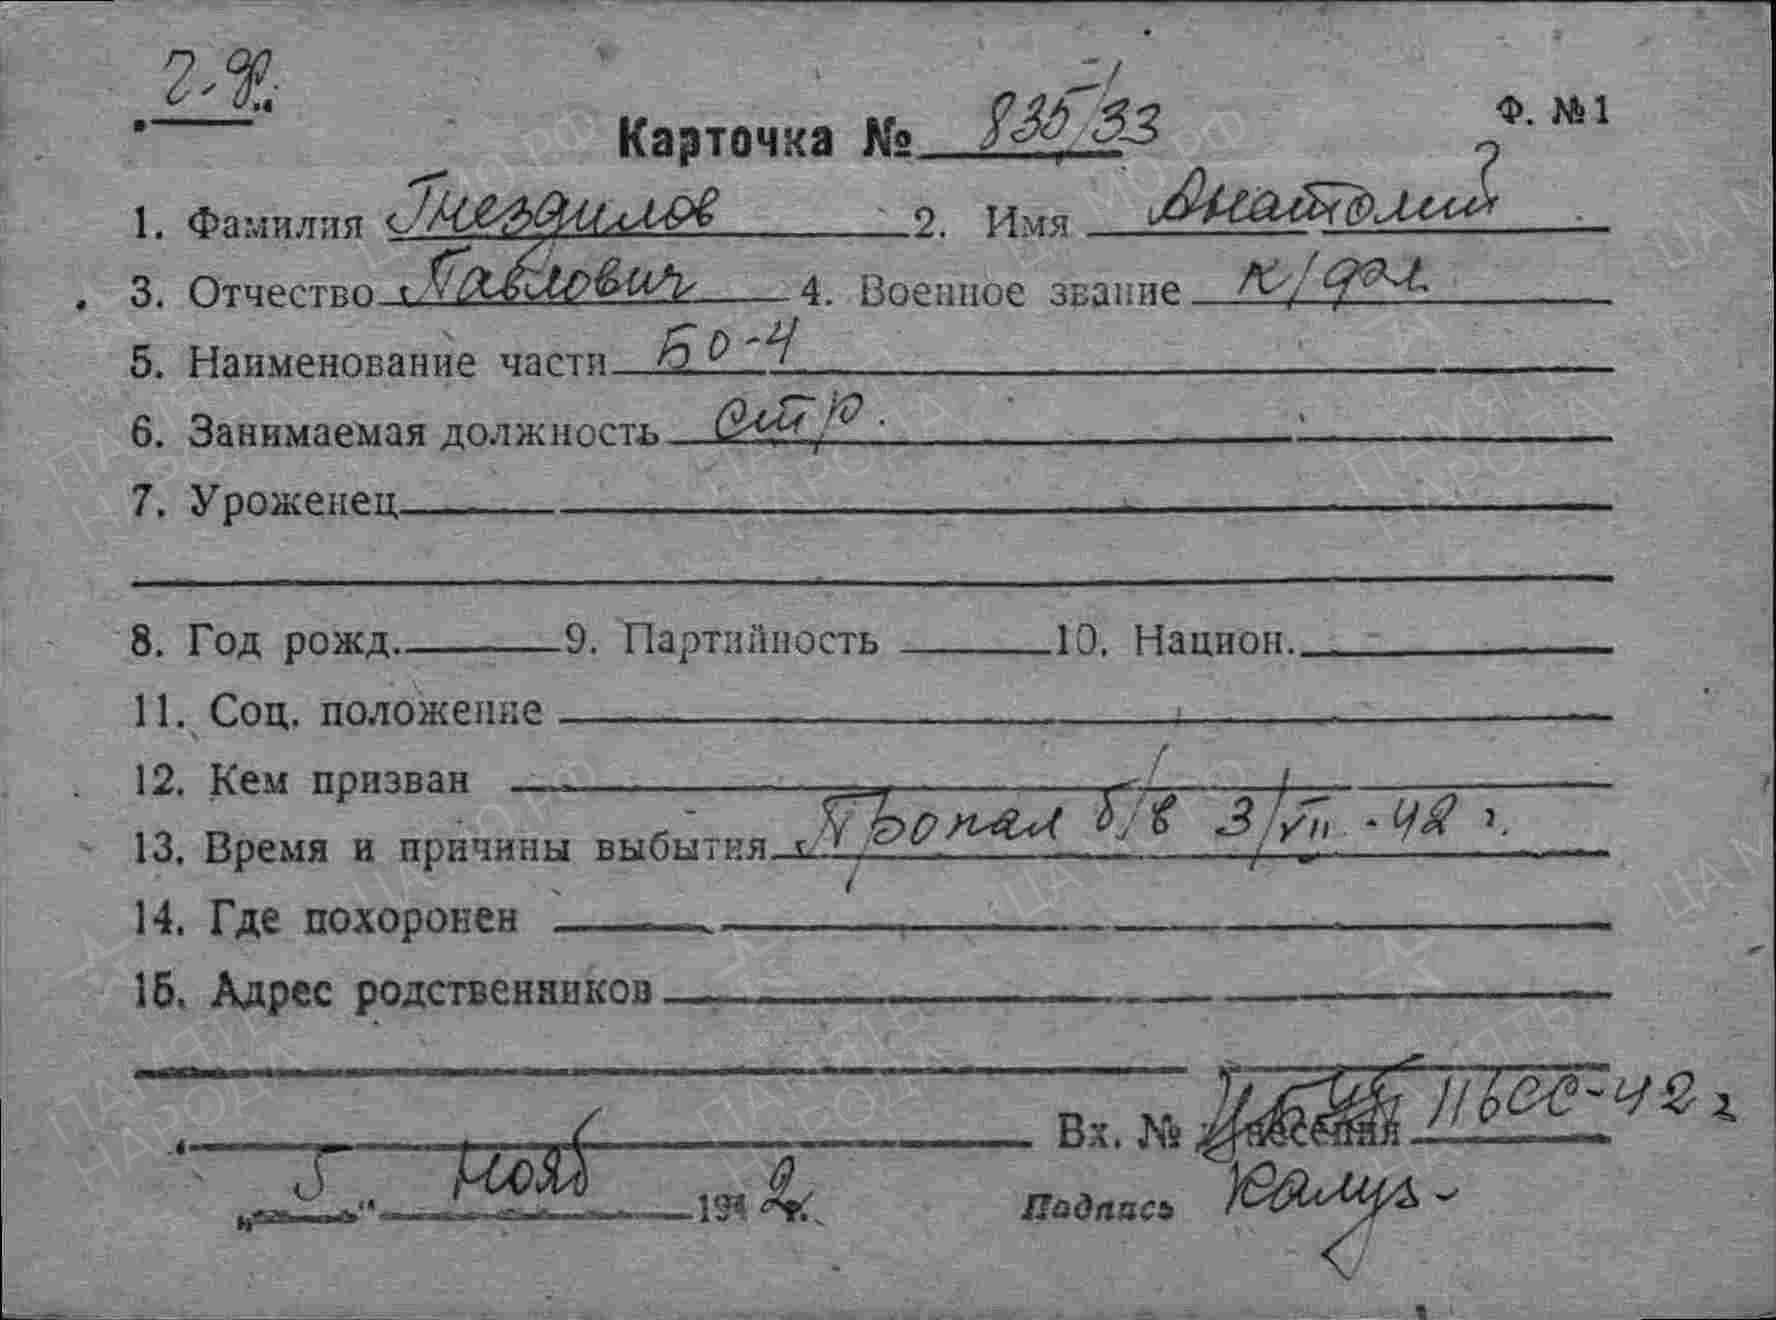 Ф. №1
Карточка № 835/33
1. Фамилия Гнездилов 2. Имя Анатолий
3. Отчество Павлович 4. Военное звание к/фл
5. Наименование части БО-4
6. Занимаемая должность стр.
7. Уроженец
8. Год рожд. 9. Партийность 10. Национ.
11. Соц. положение
12. Кем призван
13. Время и причины выбытия Пропал б/в 3/VII-42 г.
14. Где похоронен
15. Адрес родственников
Вх. № донесения 116сс-42 г
"5" Нояб 1942г.
Подпись
ПАМЯТЬ НАРОДА
ЦА МО РФ